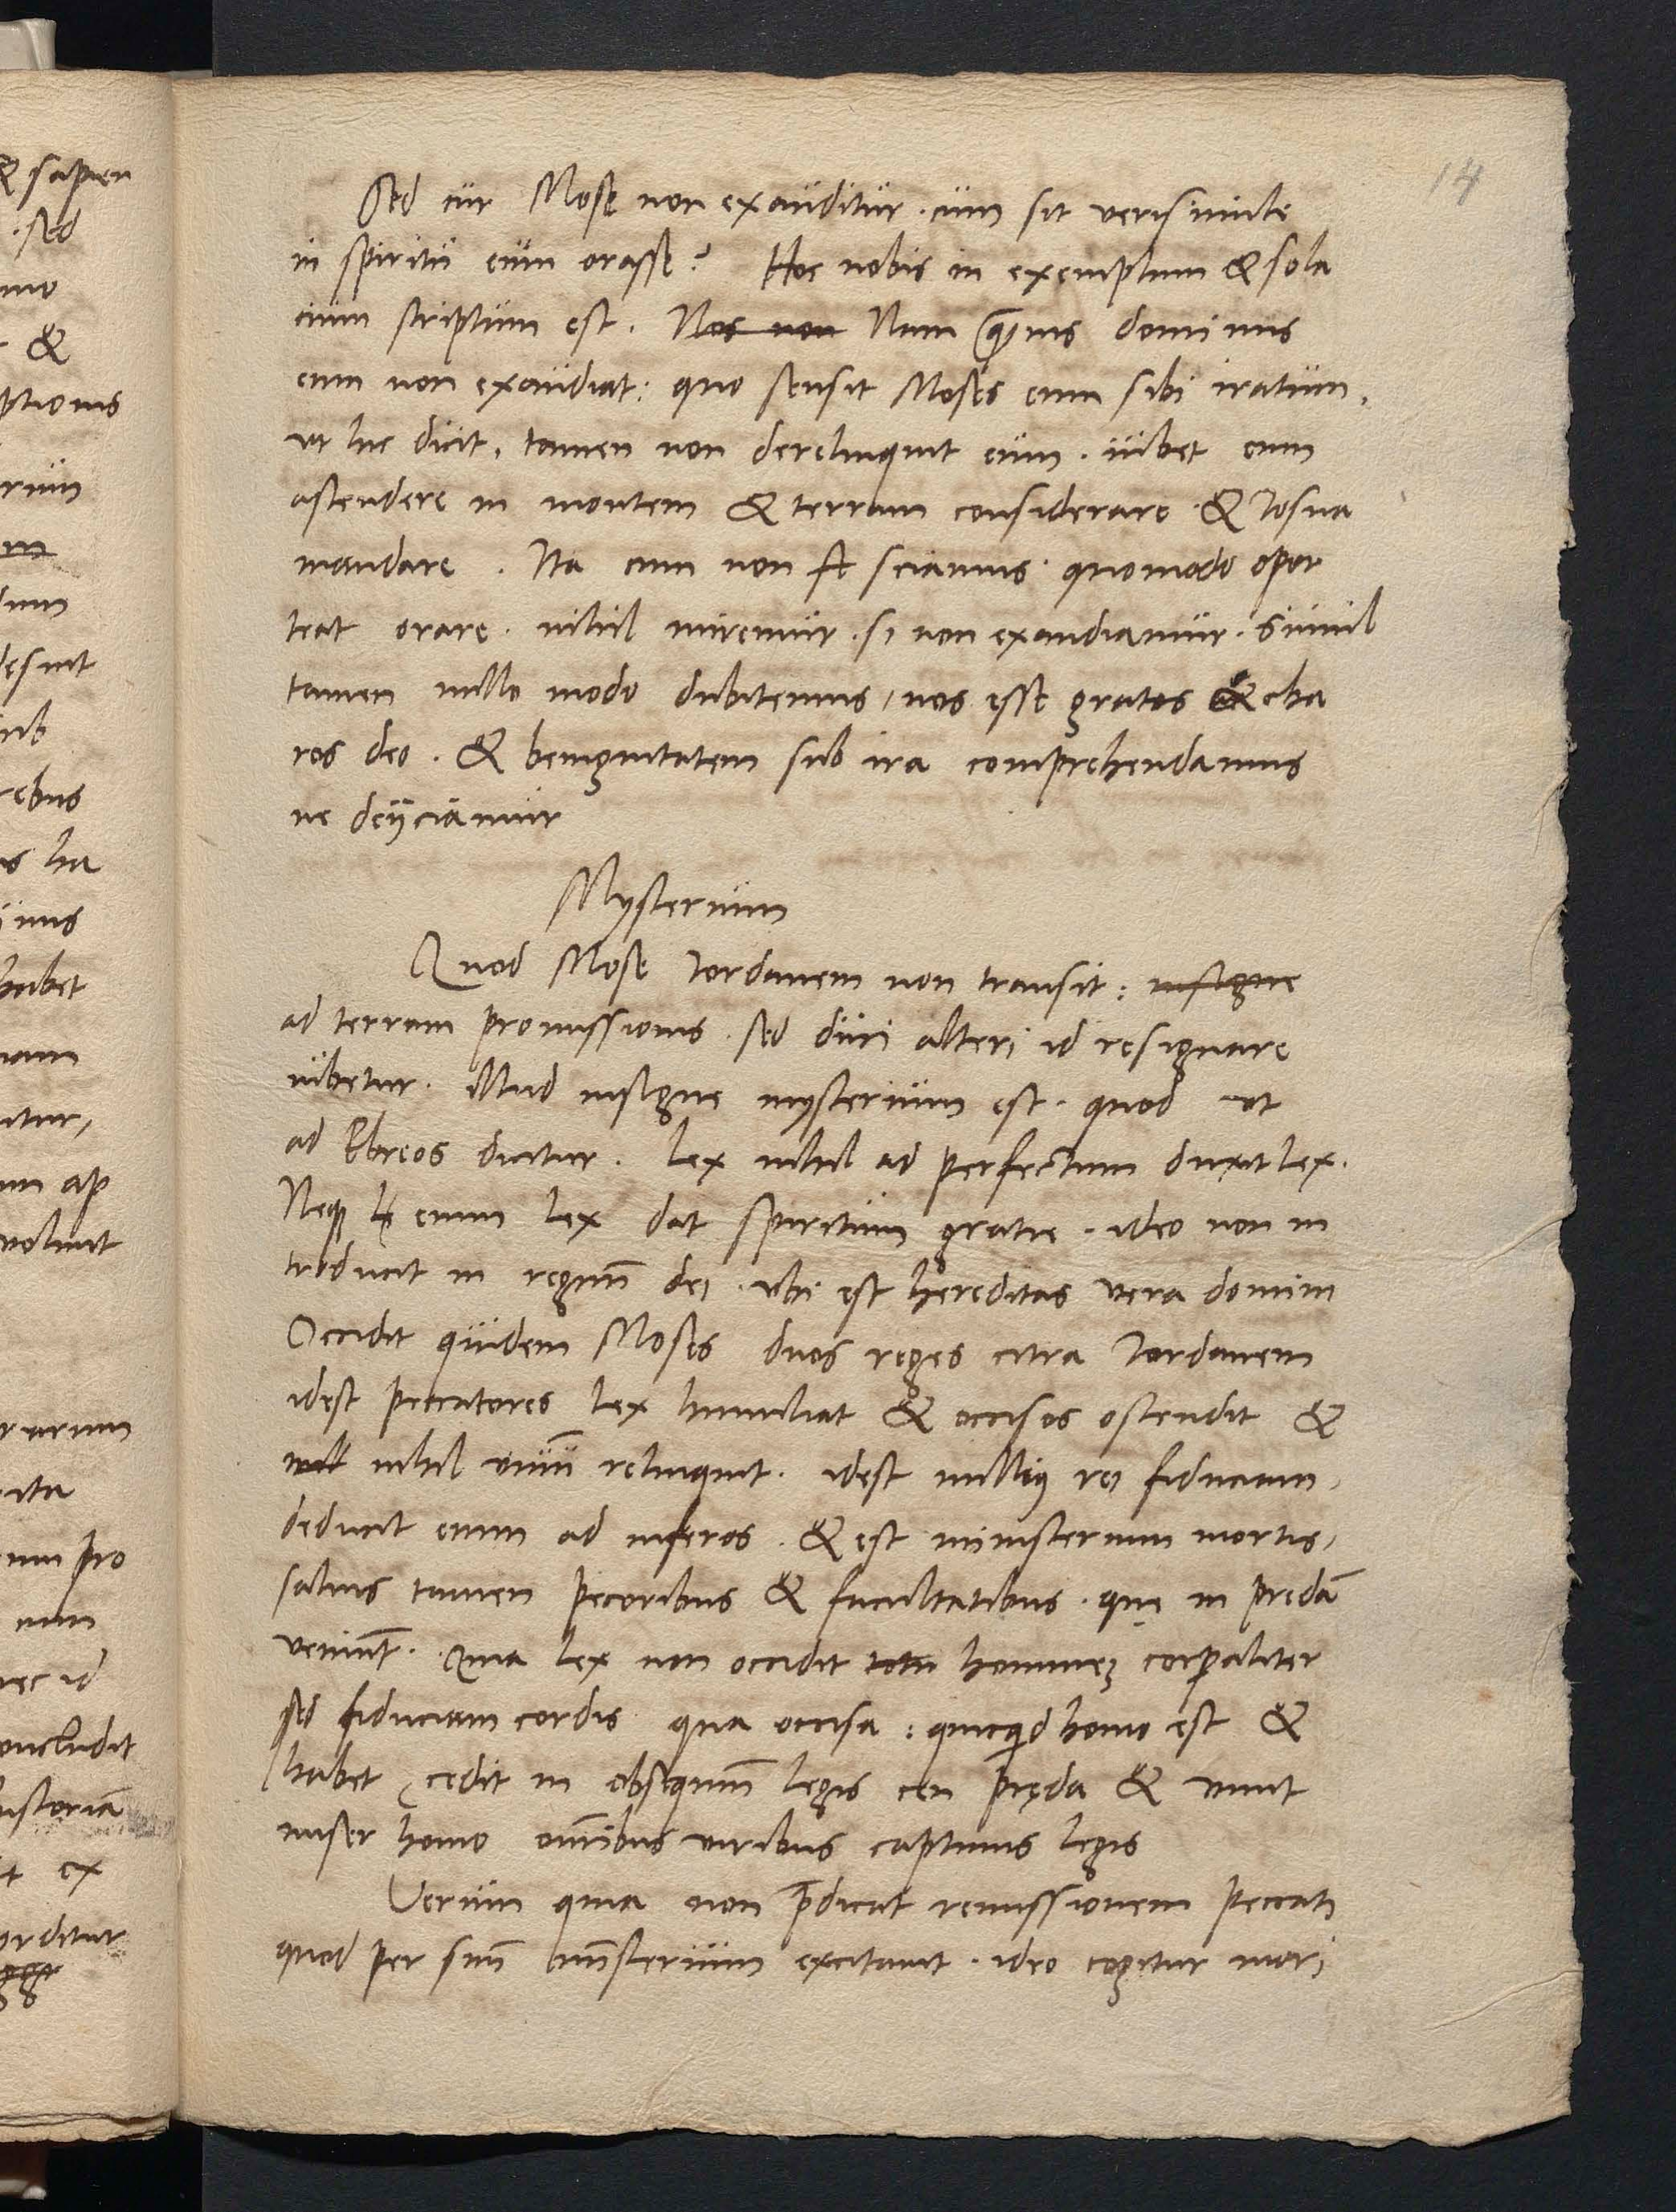 14
Sed cur Mose non exauditur. cum sit verisimile
in spiritu eum orasse? Hoc nobis in exemplum & sola
cium scriptum est. Nos non Nam quamuis dominus
eum non exaudiat: quo sensit Moses eum sibi iratum,
vt hic dicit, tamen non derelinquit eum. iubet eum
ascendere in montem & terram considerare. & Iosua
mandare. Ita cum non sciamus quomodo opor
teat orare. nihil miremur. si non exaudiamur. Simul
tamen nullo modo dubitemus, nos esse gratos & cha
ros deo. & benignitatem sub ira comprehendamus
ne deijciamur
Mysterium
Quod Mose Iordanem non transit: insigne
ad terram promissionis. sed duci alteri id resignare
iubetur. illud insigne mysterium est. quod vt
ad Ebreos dicitur. Lex nihil ad perfectum duxit lex.
Neque enim lex dat spiritum gratie. ideo non in
troducit in regnũ dei. vbi est hereditas vera domini
Occidit quidem Moses duos reges citra Iordanem
idest peccatores lex humiliat & occisos ostendit &
null nihil viuũ relinquit. idest nullius rei fiduciam,
deducit enim ad inferos. & est ministerium mortis,
saluis tamen pecoribus & facultatibus. quę in predã
veniũt. Quia lex non occidit totũ hominem corporaliter
sed fiduciam cordis qua occisa: quicquid homo est &
habet, cedit in obsequiũ legis ceu pręda & viuit
miser homo omnibus viribus captiuus legis
Verum quia non predicat remissionem peccati
quod per suũ ministerium excitauit. ideo cogitur mori
& sapien
sed
&
ptionis
rum
desint
rebus
ha
habet
itur,
ap
voluit
rarum
ita
pro
nec id
concludit
historiã
ex
orditur